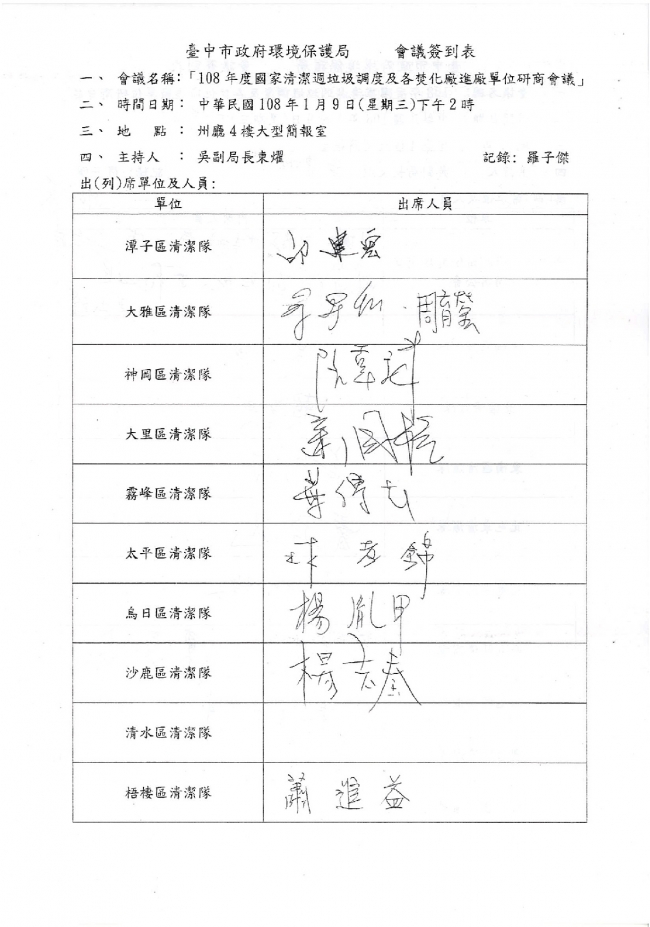 臺中市政府環境保護局 會議簽到表
一、 會議名稱:「108年度國家清潔週垃圾調度及各焚化廠進廠單位研商會議」
二、 時間日期: 中華民國108年1月9日(星期三)下午2時
三、 地 點 : 州廳4樓大型簡報室
四、 主持人 : 吳副局長東燿 記錄: 羅子傑
出(列)席單位及人員:
單位 出席人員
潭子區清潔隊
大雅區清潔隊
神岡區清潔隊
大里區清潔隊
霧峰區清潔隊
太平區清潔隊
烏日區清潔隊 楊胤甲
沙鹿區清潔隊 楊
清水區清潔隊
梧棲區清潔隊 蕭進益